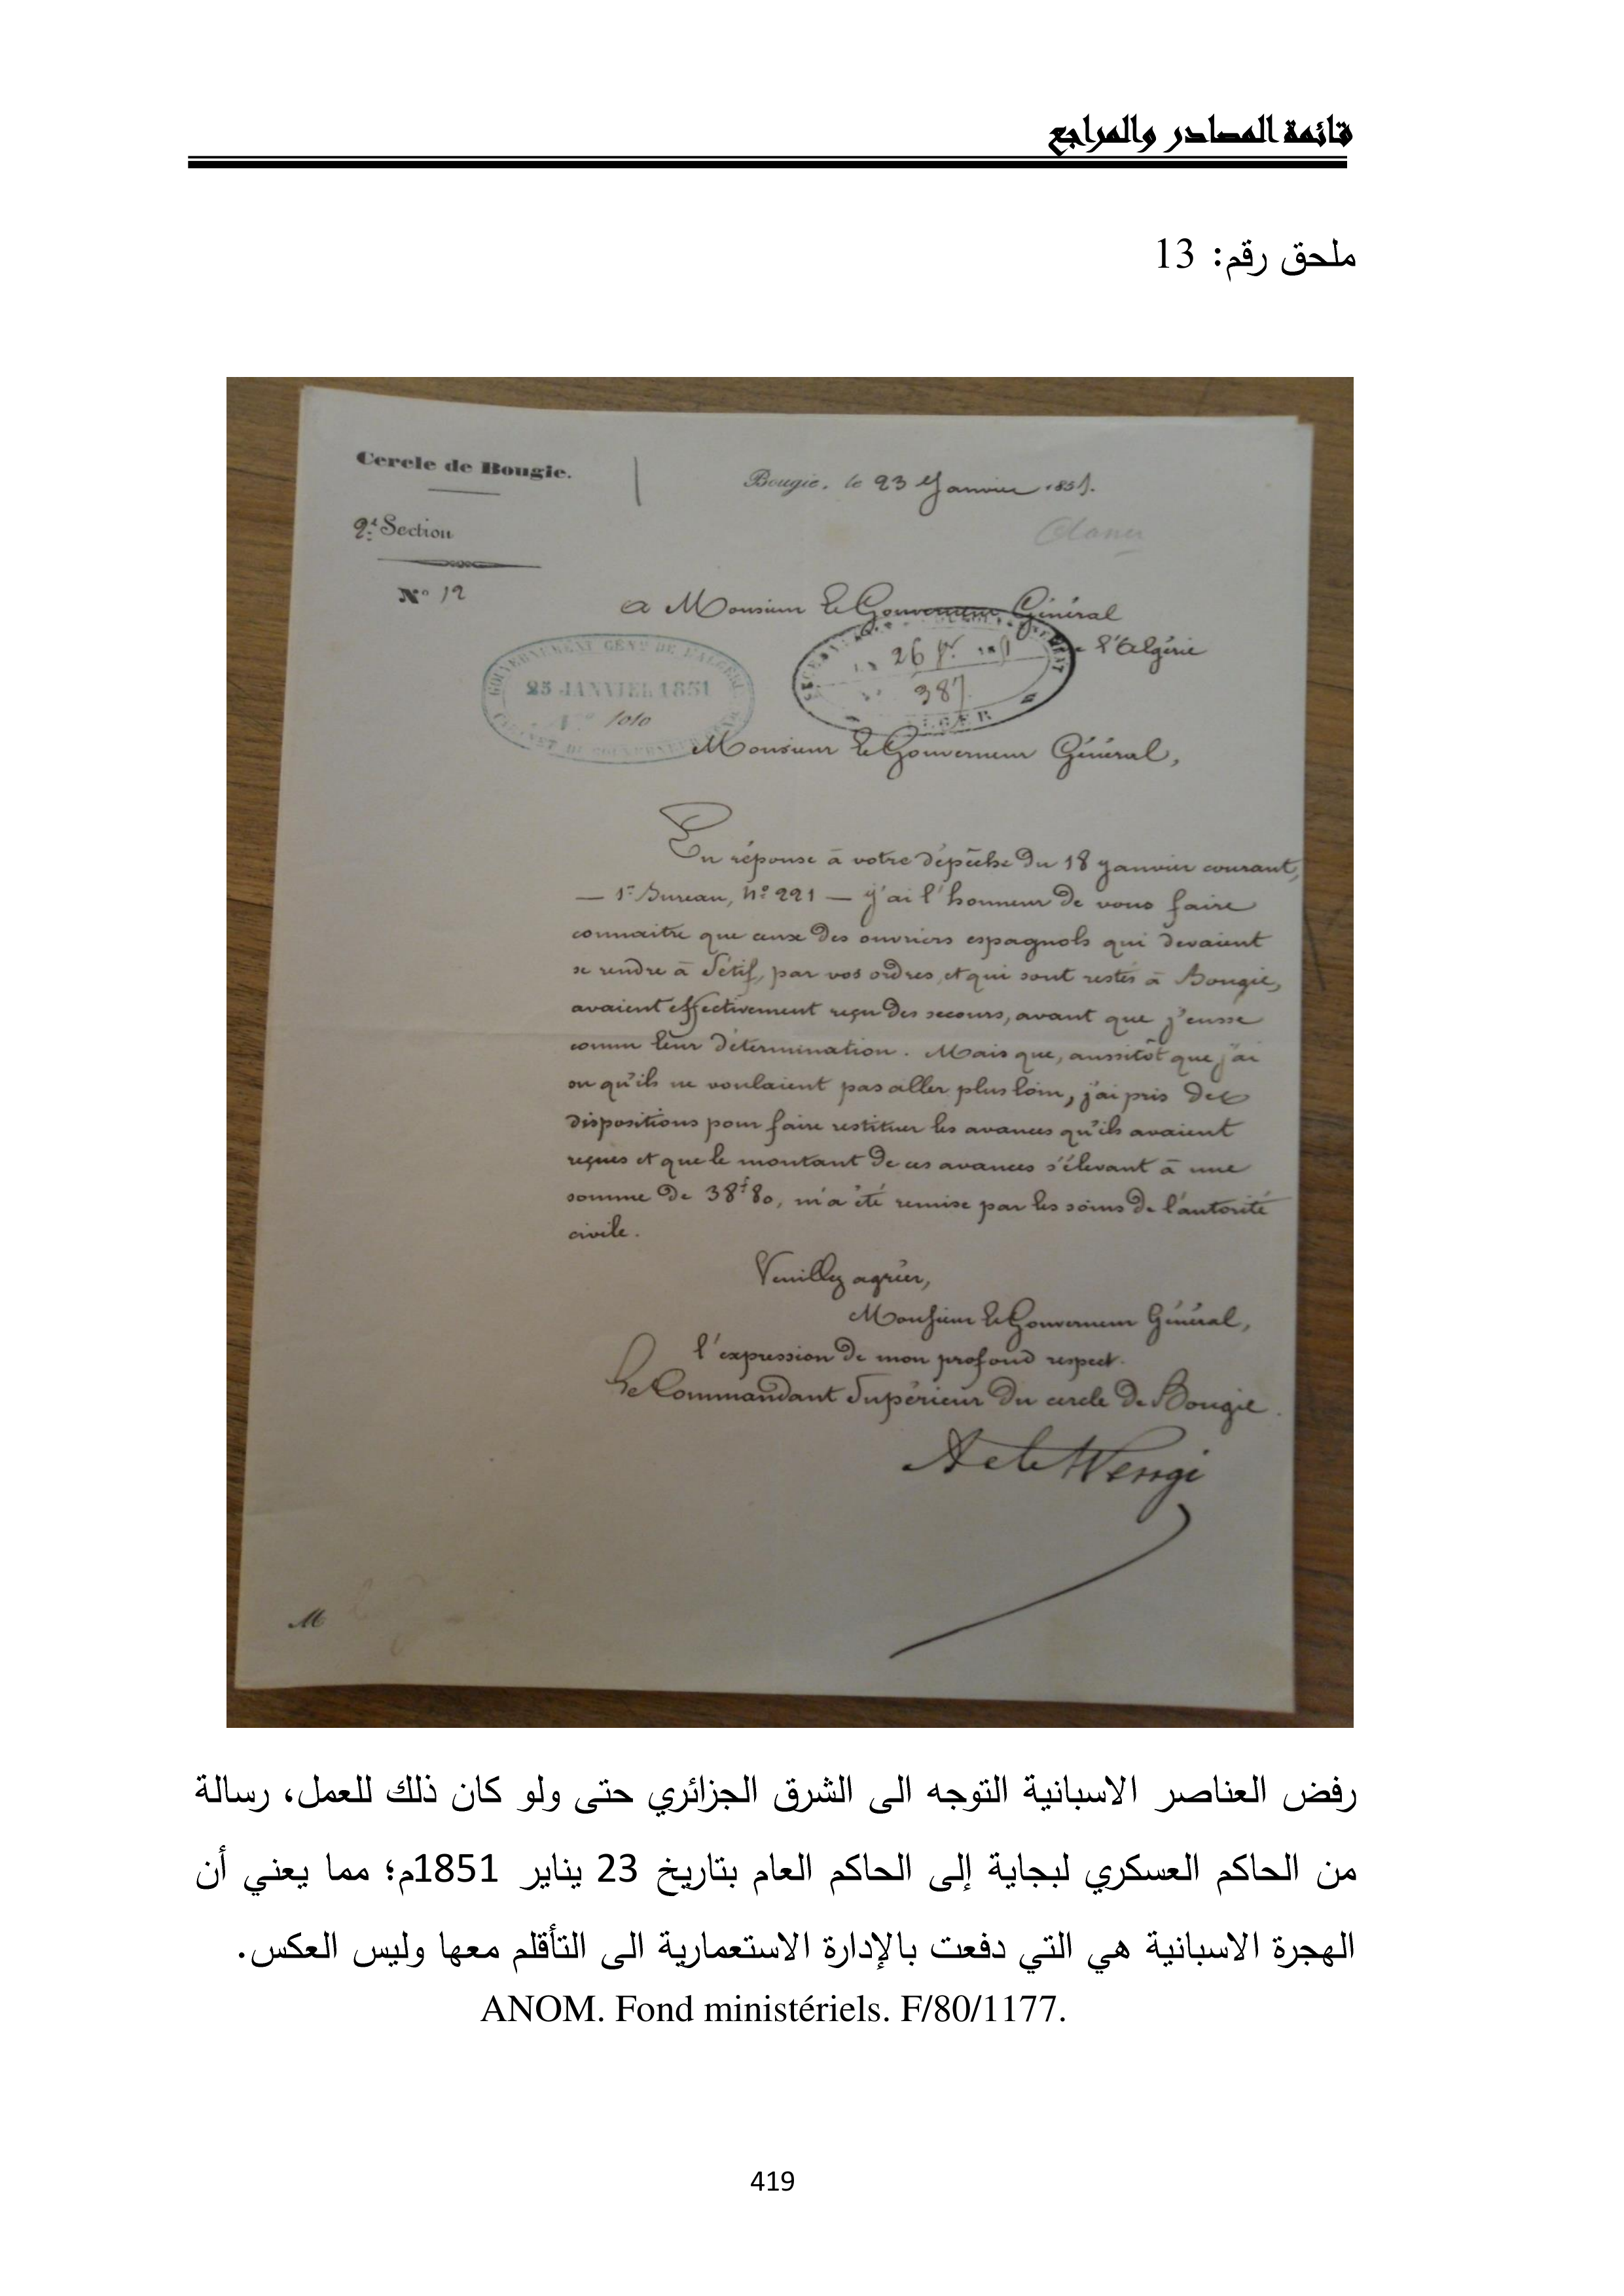 قائمة المصادر والمراجع
ملحق رقم: 13
Cercle de Bougie.
Bougie, le 23 Janvier 1851.
2e Section
N° 12
A Monsieur le Gouverneur Général
l'Algérie
GOUVERNEMENT GÉNal DE L'ALGÉRIE
25 JANVIER 1851
N° 1010
26
387
ALGER
Monsieur le Gouverneur Général,
En réponse à votre dépêche du 18 Janvier courant,
— 1er Bureau, N° 221 — j'ai l'honneur de vous faire
connaitre que ceux des ouvriers espagnols qui devaient
se rendre à Sétif, par vos ordres, et qui sont restés à Bougie,
avaient effectivement reçu des secours, avant que j'eusse
connu leur détermination. Mais que, aussitôt que j'ai
su qu'ils ne voulaient pas aller plus loin, j'ai pris des
dispositions pour faire restituer les avances qu'ils avaient
reçues et que le montant de ces avances s'élevant à une
somme de 38f 80, m'a été remise par les soins de l'autorité
civile.
Veuillez agréer,
Monsieur le Gouverneur Général,
l'expression de mon profond respect.
Le Commandant Supérieur du cercle de Bougie.
M
رفض العناصر الاسبانية التوجه الى الشرق الجزائري حتى ولو كان ذلك للعمل، رسالة
من الحاكم العسكري لبجاية إلى الحاكم العام بتاريخ 23 يناير 1851م؛ مما يعني أن
الهجرة الاسبانية هي التي دفعت بالإدارة الاستعمارية الى التأقلم معها وليس العكس.
ANOM. Fond ministériels. F/80/1177.
419